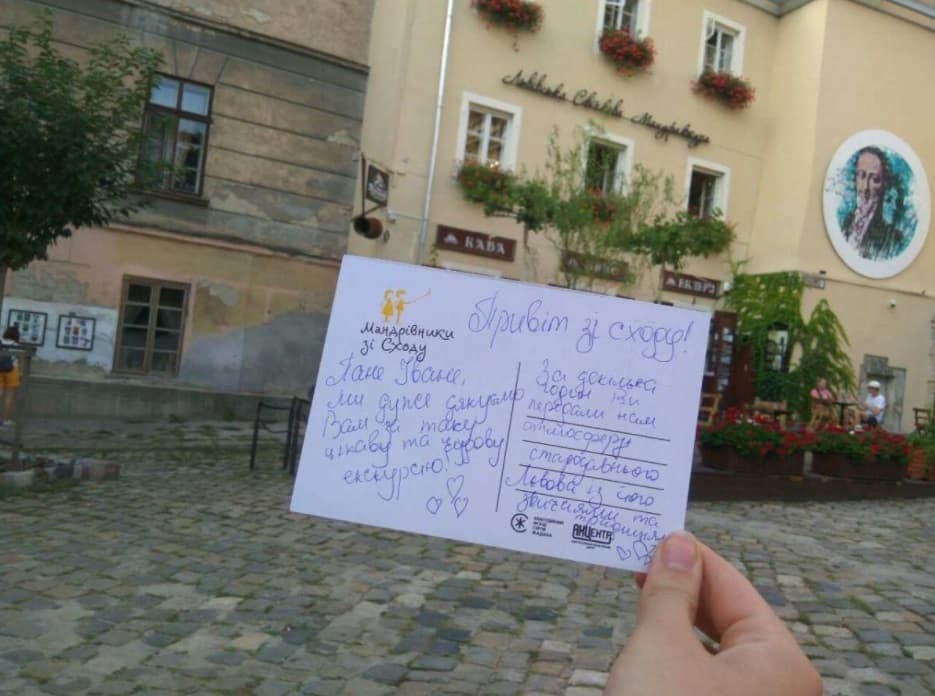 Львівська Світлиця
КАВА
ЕКЛЕРИ
Мандрівники
зі Сходу
Привіт зі сходу!
Пане Іване,
ми дуже дякуємо
Вам за таку
цікаву та чудову
екскурсію!
За декілька
годин Ви
передали нам
атмосферу
стародавнього
Львова із його
звичаями та
традиціями
БЛАГОДІЙНИЙ
ФОНД
СЕРГІЯ
ЖАДАНА
АКЦЕНТР